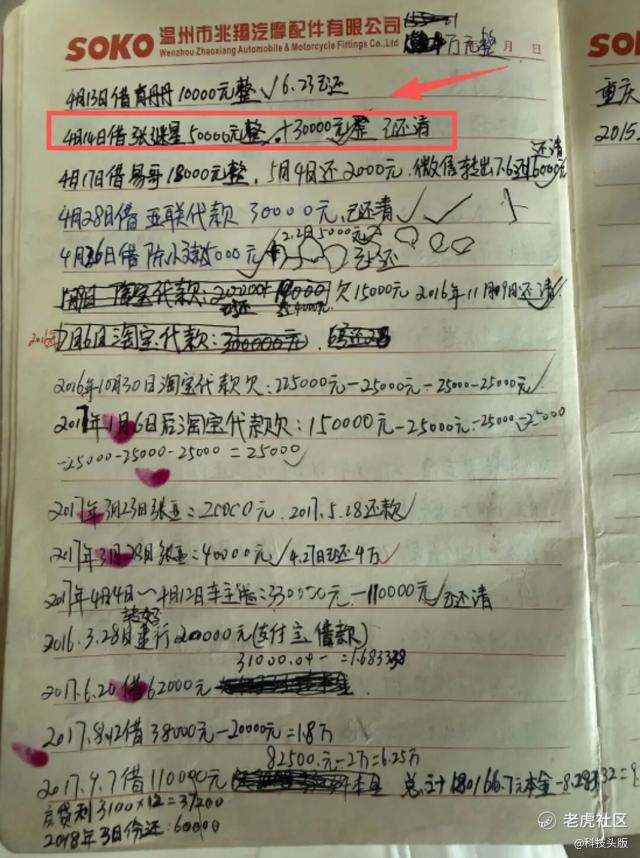 SOKO 温州市兆翔汽摩配件有限公司
Wenzhou Zhaoxiang Automobile & Motorcycle Fittings Co.,Ltd
万元整 月 日
SO
重庆
2015.
4月13日借 10000元整 ✓ 6.23 还
4月14日借张继星50000元整 + 30000元整 已还清
还清
4月17日借易哥18000元整, 5月4日还2000元.微信转出7.6还16000元
4月28日借亚联代款 30000元,已还清 ✓ ✓
2.2日5000元
4月26日借陈 5000元 已还
淘宝代款: 欠15000元 2016年11月9日还清
2016 7月6日淘宝代款:
2016年10月30日淘宝代款欠: 225000元-25000元-25000-25000元 ✓
2017年1月6日后淘宝代款欠: 150000元-25000元-25000-25000
-25000-25000-25000=25000 ✓
2017年3月23日张亚: 20000元. 2017.5.28还款 ✓
2017年3月28日张亚: 40000元 ✓ 4.27日已还4万 ✓
2017年4月4日~4月12日车主 : 330000元-110000元 ✓ 已还清
2016.3.28日建行200000元(支付宝借款)
31000.04- =1.68338
2017.6.20借62000元
2017.8.12借38000元-20000元=1.8万
82500元-2万=6.25万
2017.9.7借110000元 本金 总计180166.7元本金-8.28332=9.
房贷利3100×12=37200
2018年3月份还: 60000
老虎社区
@科技头版